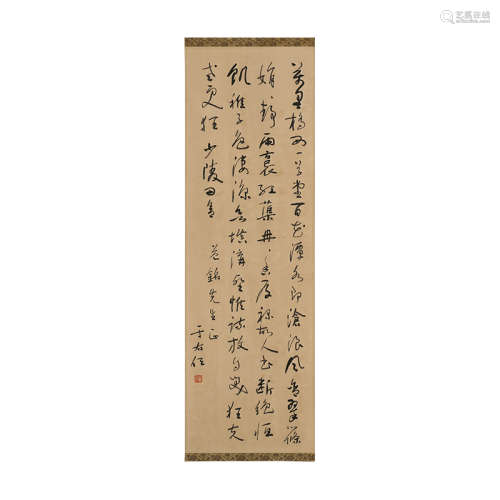 萬里橋西一草堂百花潭水即滄浪風含翠篠
娟々靜雨裛紅蕖冉々香厚祿故人書斷絕恆
飢稚子色淒涼欲填溝壑惟疏放自笑狂夫
老更狂 少陵
銘先生正
于右任